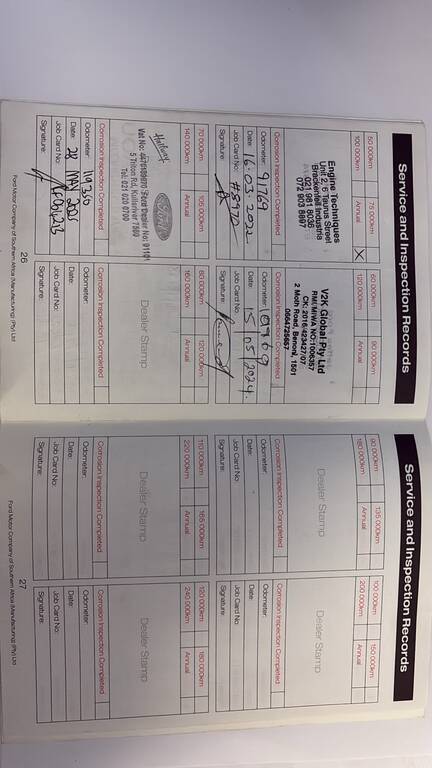 Service and Inspection Records
50 000km 75 000km
100 000km Annual X
Engine Techniques
Unit 2, 6 Taurus Street
Brackenfell Industria
021 981 8036
072 903 8997
Corrosion Inspection Completed
Odometer: 91769
Date: 16.03.2022
Job Card No:
Signature:
60 000km 90 000km
120 000km Annual
V2K Global Pty Ltd
RMI/MIWA NO:1006357
CK: 2016/423427/07
2 Moth Road, Benoni, 1501
0664725657
Corrosion Inspection Completed
Odometer:
Date: 15/05/2024.
Job Card No:
Signature:
70 000km 105 000km
140 000km Annual
Halfway
Ford
5 Triton Rd, Kuilsriver 7580
Tel: 021 020 0700
Corrosion Inspection Completed
Odometer: 119350
Date: 28 MAY 2025
Job Card No:
Signature:
80 000km 120 000km
160 000km Annual
Dealer Stamp
Corrosion Inspection Completed
Odometer:
Date:
Job Card No:
Signature:
Ford Motor Company of Southern Africa (Manufacturing) (Pty) Ltd
26
Service and Inspection Records
90 000km 135 000km
180 000km Annual
Dealer Stamp
Corrosion Inspection Completed
Odometer:
Date:
Job Card No:
Signature:
100 000km 150 000km
200 000km Annual
Dealer Stamp
Corrosion Inspection Completed
Odometer:
Date:
Job Card No:
Signature:
110 000km 165 000km
220 000km Annual
Dealer Stamp
Corrosion Inspection Completed
Odometer:
Date:
Job Card No:
Signature:
120 000km 180 000km
240 000km Annual
Dealer Stamp
Corrosion Inspection Completed
Odometer:
Date:
Job Card No:
Signature:
Ford Motor Company of Southern Africa (Manufacturing) (Pty) Ltd
27